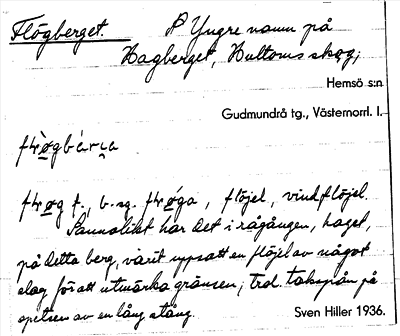 Flögberget. Yngre namn på
Hagberget, Hultoms skog;
Hemsö s:n
Gudmundrå tg., Västernorrl. l.
flø̱gbárᶇa
flø̱g f., b. sg. flø̱ga, flöjel, vindflöjel.
Sannolikt har det i rågången, haget,
på detta berg, varit uppsatt en flöjel av något
slag för att utmärka gränsen; trol. takspån på
spetsen av en lång stång.
Sven Hiller 1936.